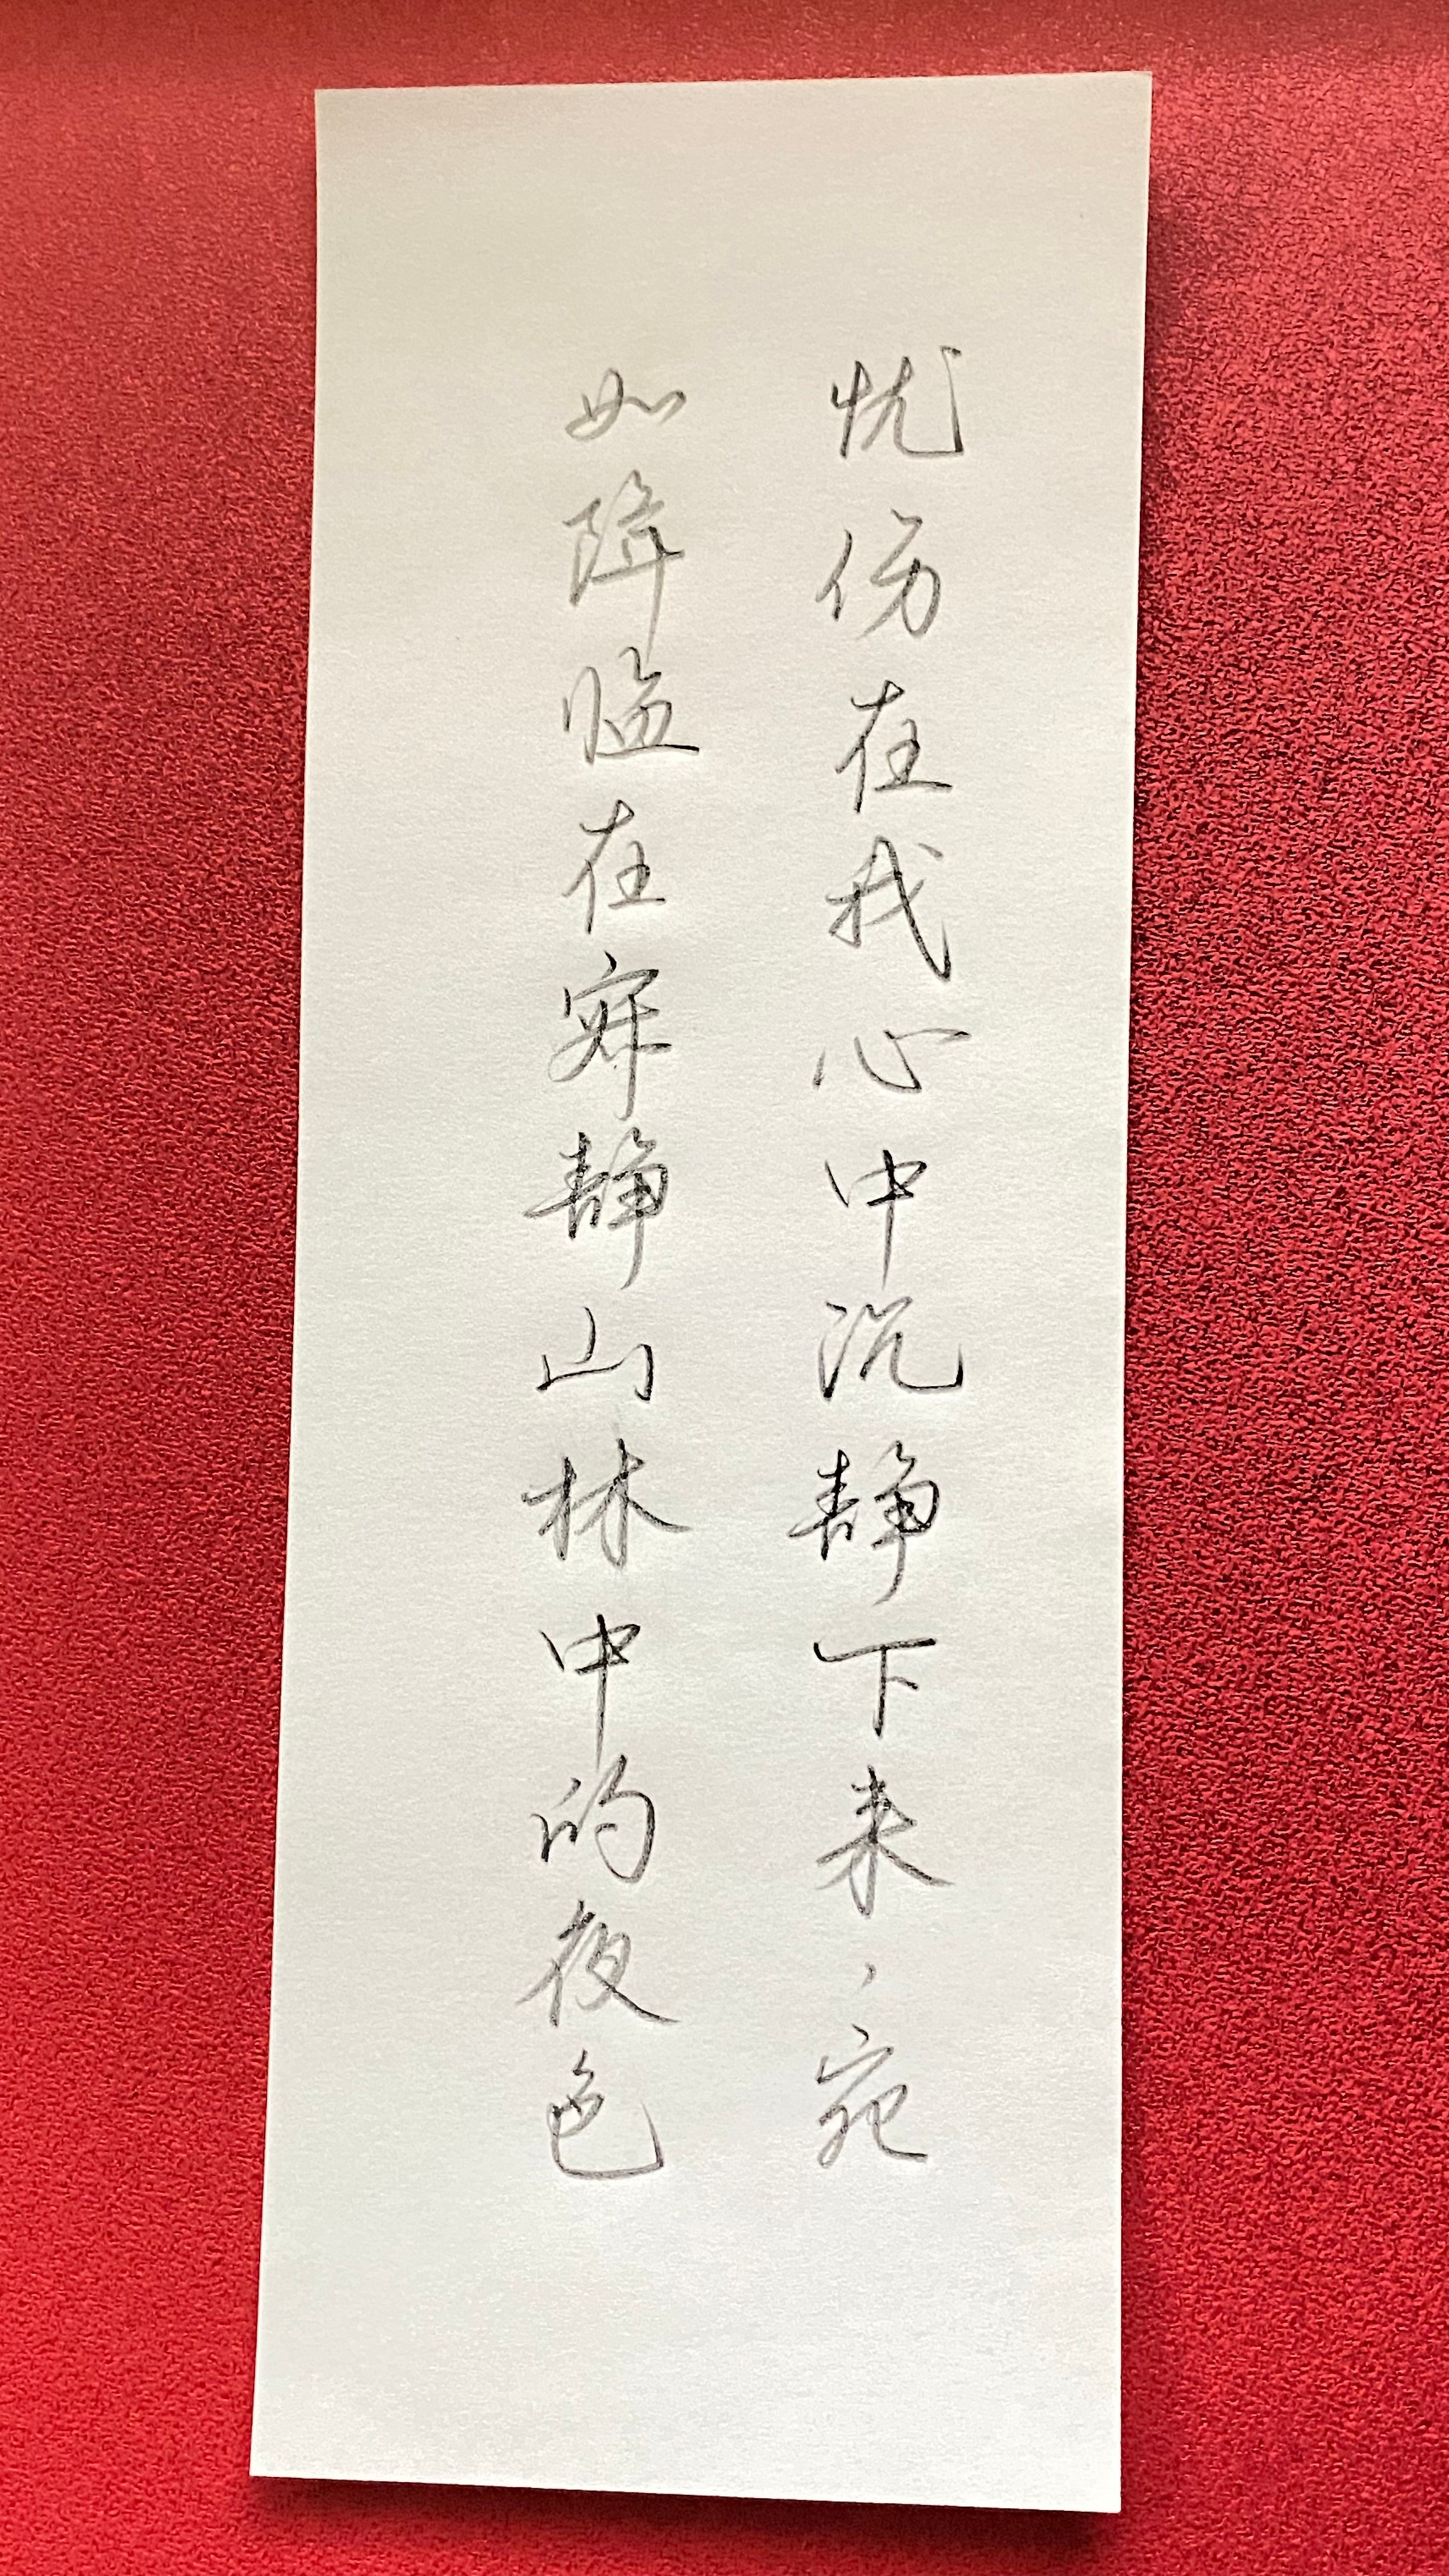 忧伤在我心中沉静下来，宛
如降临在寂静山林中的夜色